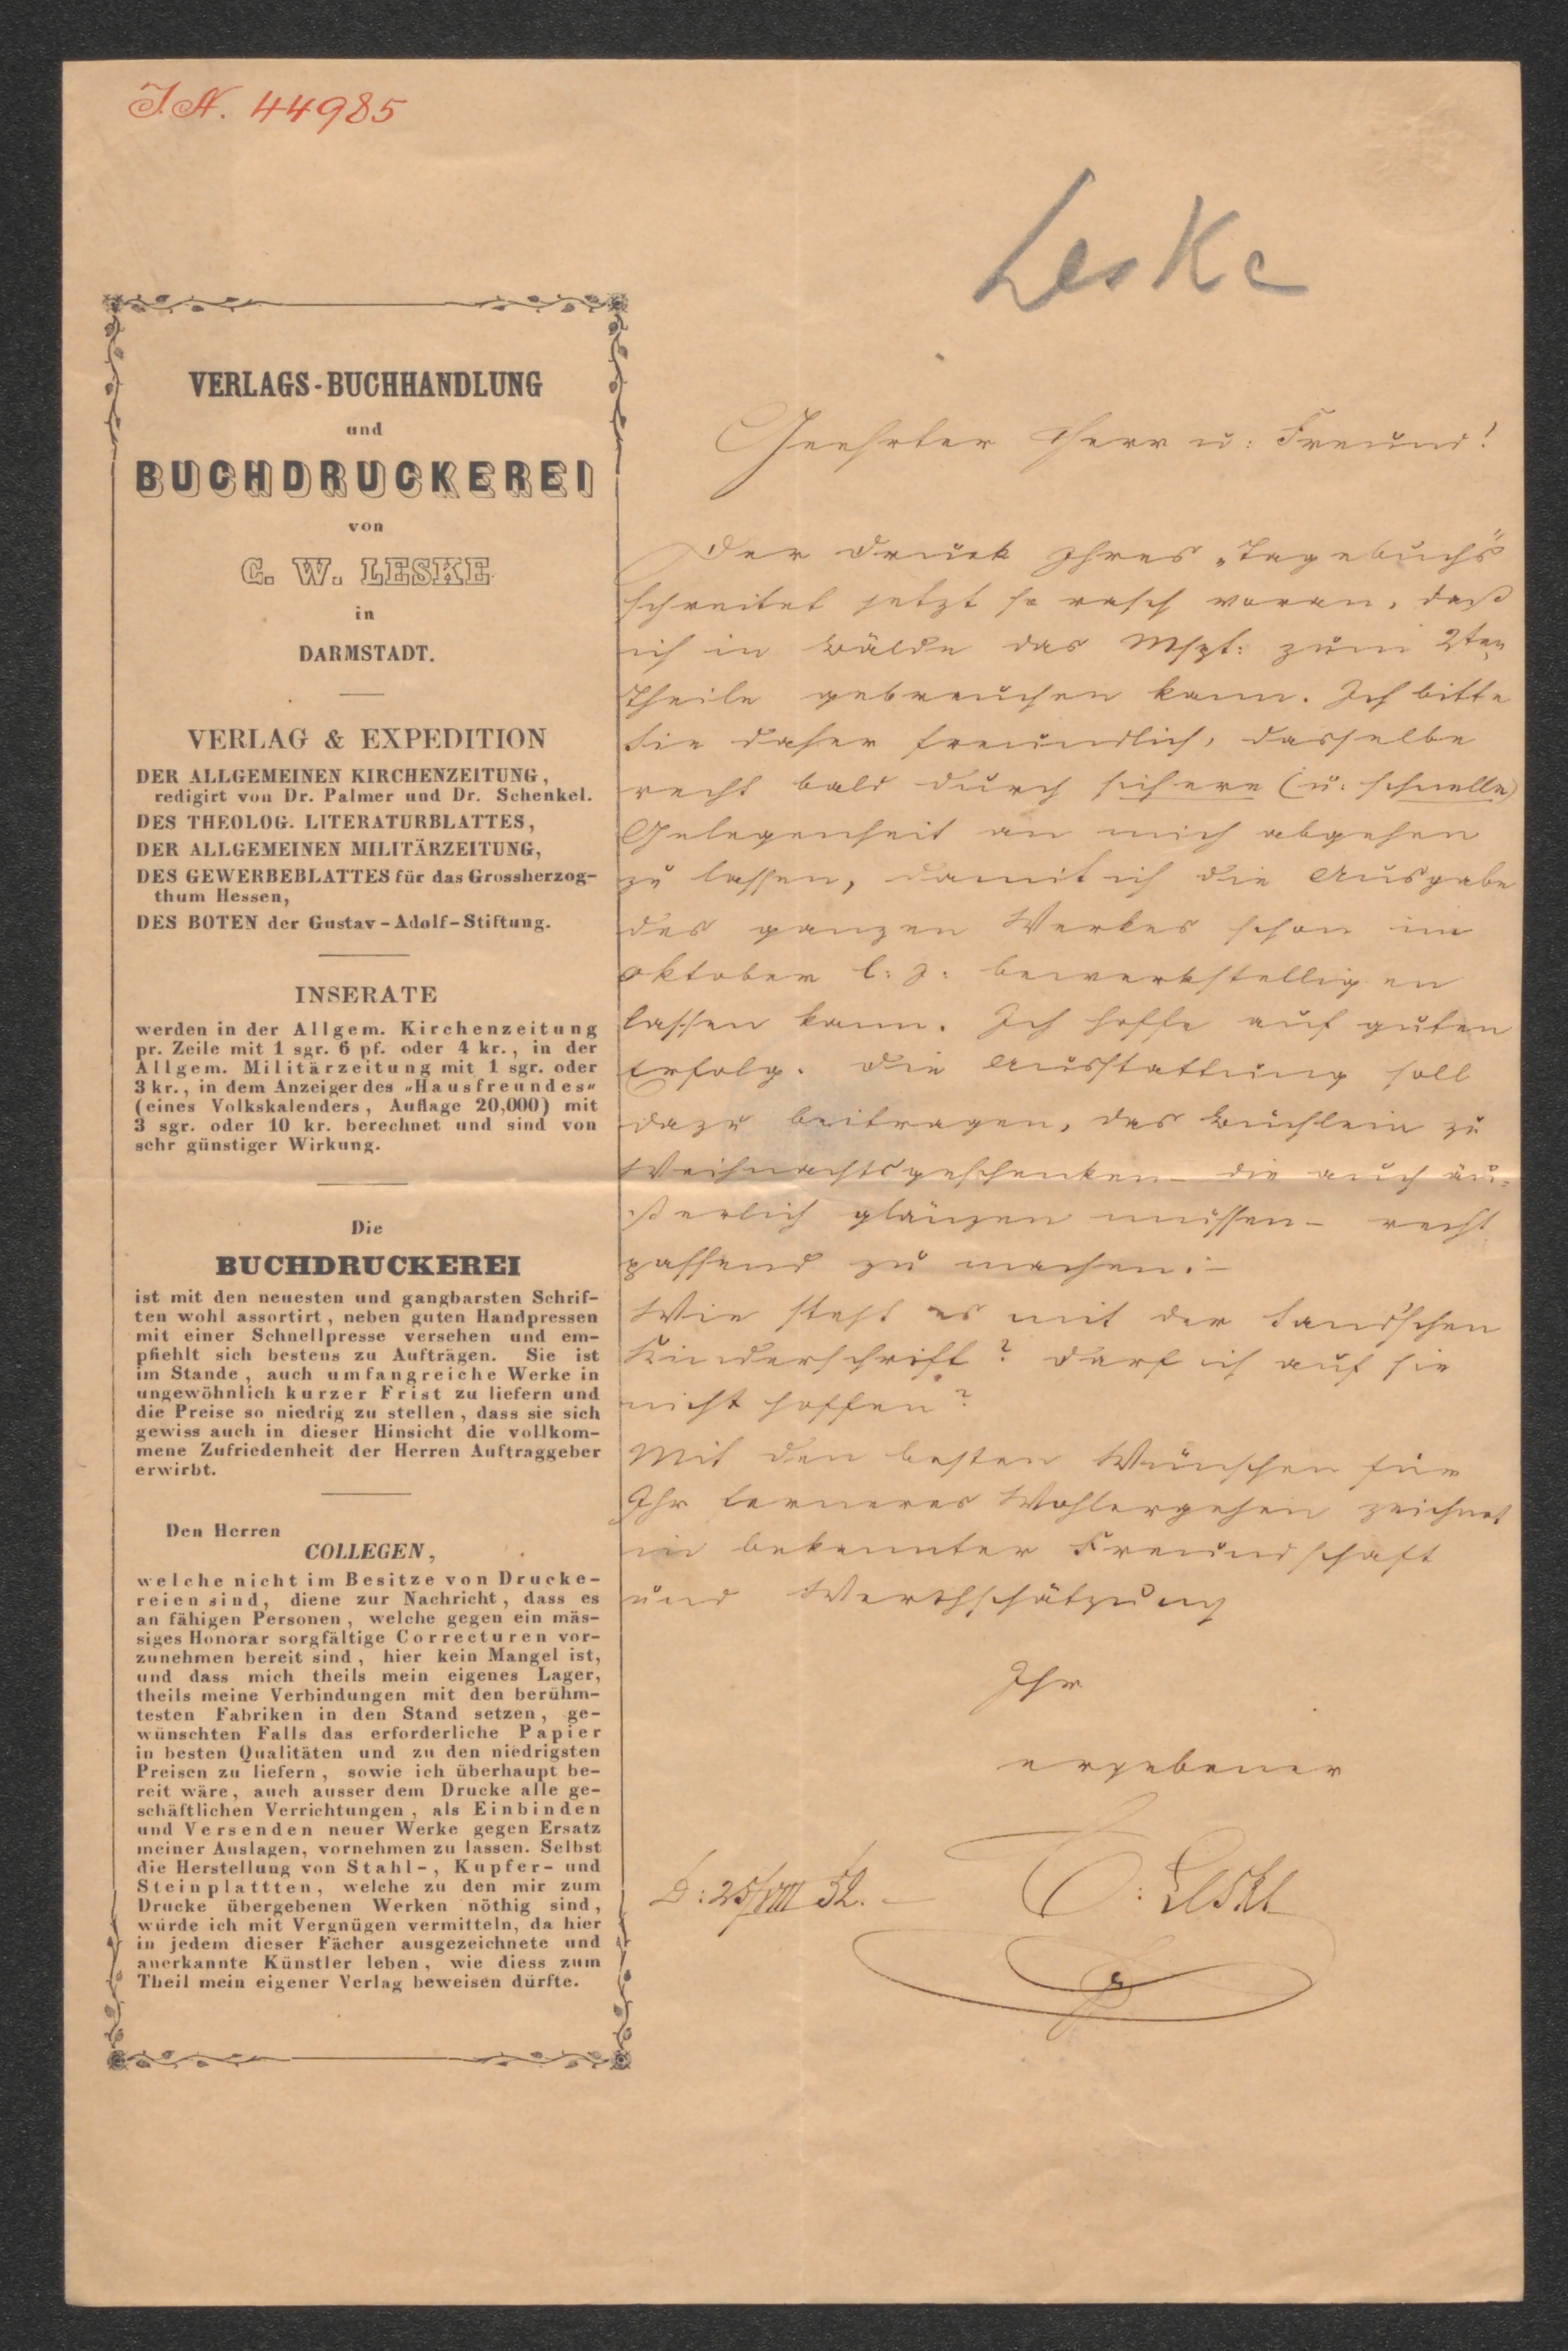 J.N. 44985
Leske
VERLAGS-BUCHHANDLUNG
und
BUCHDRUCKEREI
von
C. W. LESKE
in
DARMSTADT.
VERLAG & EXPEDITION
DER ALLGEMEINEN KIRCHENZEITUNG,
redigirt von Dr. Palmer und Dr. Schenkel.
DES THEOLOG. LITERATURBLATTES,
DER ALLGEMEINEN MILITÄRZEITUNG,
DES GEWERBEBLATTES für das Grossherzog-
thum Hessen,
DES BOTEN der Gustav-Adolf-Stiftung.
INSERATE
werden in der Allgem. Kirchenzeitung
pr. Zeile mit 1 sgr. 6 pf. oder 4 kr., in der
Allgem. Militärzeitung mit 1 sgr. oder
3 kr., in dem Anzeiger des „Hausfreundes"
(eines Volkskalenders, Auflage 20,000) mit
3 sgr. oder 10 kr. berechnet und sind von
sehr günstiger Wirkung.
Die
BUCHDRUCKEREI
ist mit den neuesten und gangbarsten Schrif-
ten wohl assortirt, neben guten Handpressen
mit einer Schnellpresse versehen und em-
pfiehlt sich bestens zu Aufträgen. Sie ist
im Stande, auch umfangreiche Werke in
ungewöhnlich kurzer Frist zu liefern und
die Preise so niedrig zu stellen, dass sie sich
gewiss auch in dieser Hinsicht die vollkom-
mene Zufriedenheit der Herren Auftraggeber
erwirbt.
Den Herren
COLLEGEN,
welche nicht im Besitze von Drucke-
reien sind, diene zur Nachricht, dass es
an fähigen Personen, welche gegen ein mäs-
siges Honorar sorgfältige Correcturen vor-
zunehmen bereit sind, hier kein Mangel ist,
und dass mich theils mein eigenes Lager,
theils meine Verbindungen mit den berühm-
testen Fabriken in den Stand setzen, ge-
wünschten Falls das erforderliche Papier
in besten Qualitäten und zu den niedrigsten
Preisen zu liefern, sowie ich überhaupt be-
reit wäre, auch ausser dem Drucke alle ge-
schäftlichen Verrichtungen, als Einbinden
und Versenden neuer Werke gegen Ersatz
meiner Auslagen, vornehmen zu lassen. Selbst
die Herstellung von Stahl-, Kupfer- und
Steinplattten, welche zu den mir zum
Drucke übergebenen Werken nöthig sind,
würde ich mit Vergnügen vermitteln, da hier
in jedem dieser Fächer ausgezeichnete und
anerkannte Künstler leben, wie diess zum
Theil mein eigener Verlag beweisen dürfte.
Geehrter Herr u: Freund!
Der Druck Ihres „Tagebuchs"
schreitet jetzt so rasch voran, daß
ich in Bälde das Mspt: zum 2ten
Theile gebrauchen kann. Ich bitte
Sie daher freundlich, dasselbe
recht bald durch sichere (u: schnelle)
Gelegenheit an mich abgehen
zu lassen, damit ich die Ausgabe
des ganzen Werkes schon im
Oktober l: J: bewerkstelligen
lassen kann. Ich hoffe auf guten
Erfolg. Die Ausstattung soll
dazu beitragen, das Büchlein zu
Weihnachtsgeschenken – die auch äu-
ßerlich glänzen müssen – recht
passend zu machen. –
Wie steht es mit der Sand'schen
Kinderschrift? Darf ich auf sie
nicht hoffen?
Mit den besten Wünschen für
Ihr ferneres Wohlergehen zeichnet
in bekannter Freundschaft
und Werthschätzung
Ihr
ergebener
D: 25/VIII 52. – C: Leske